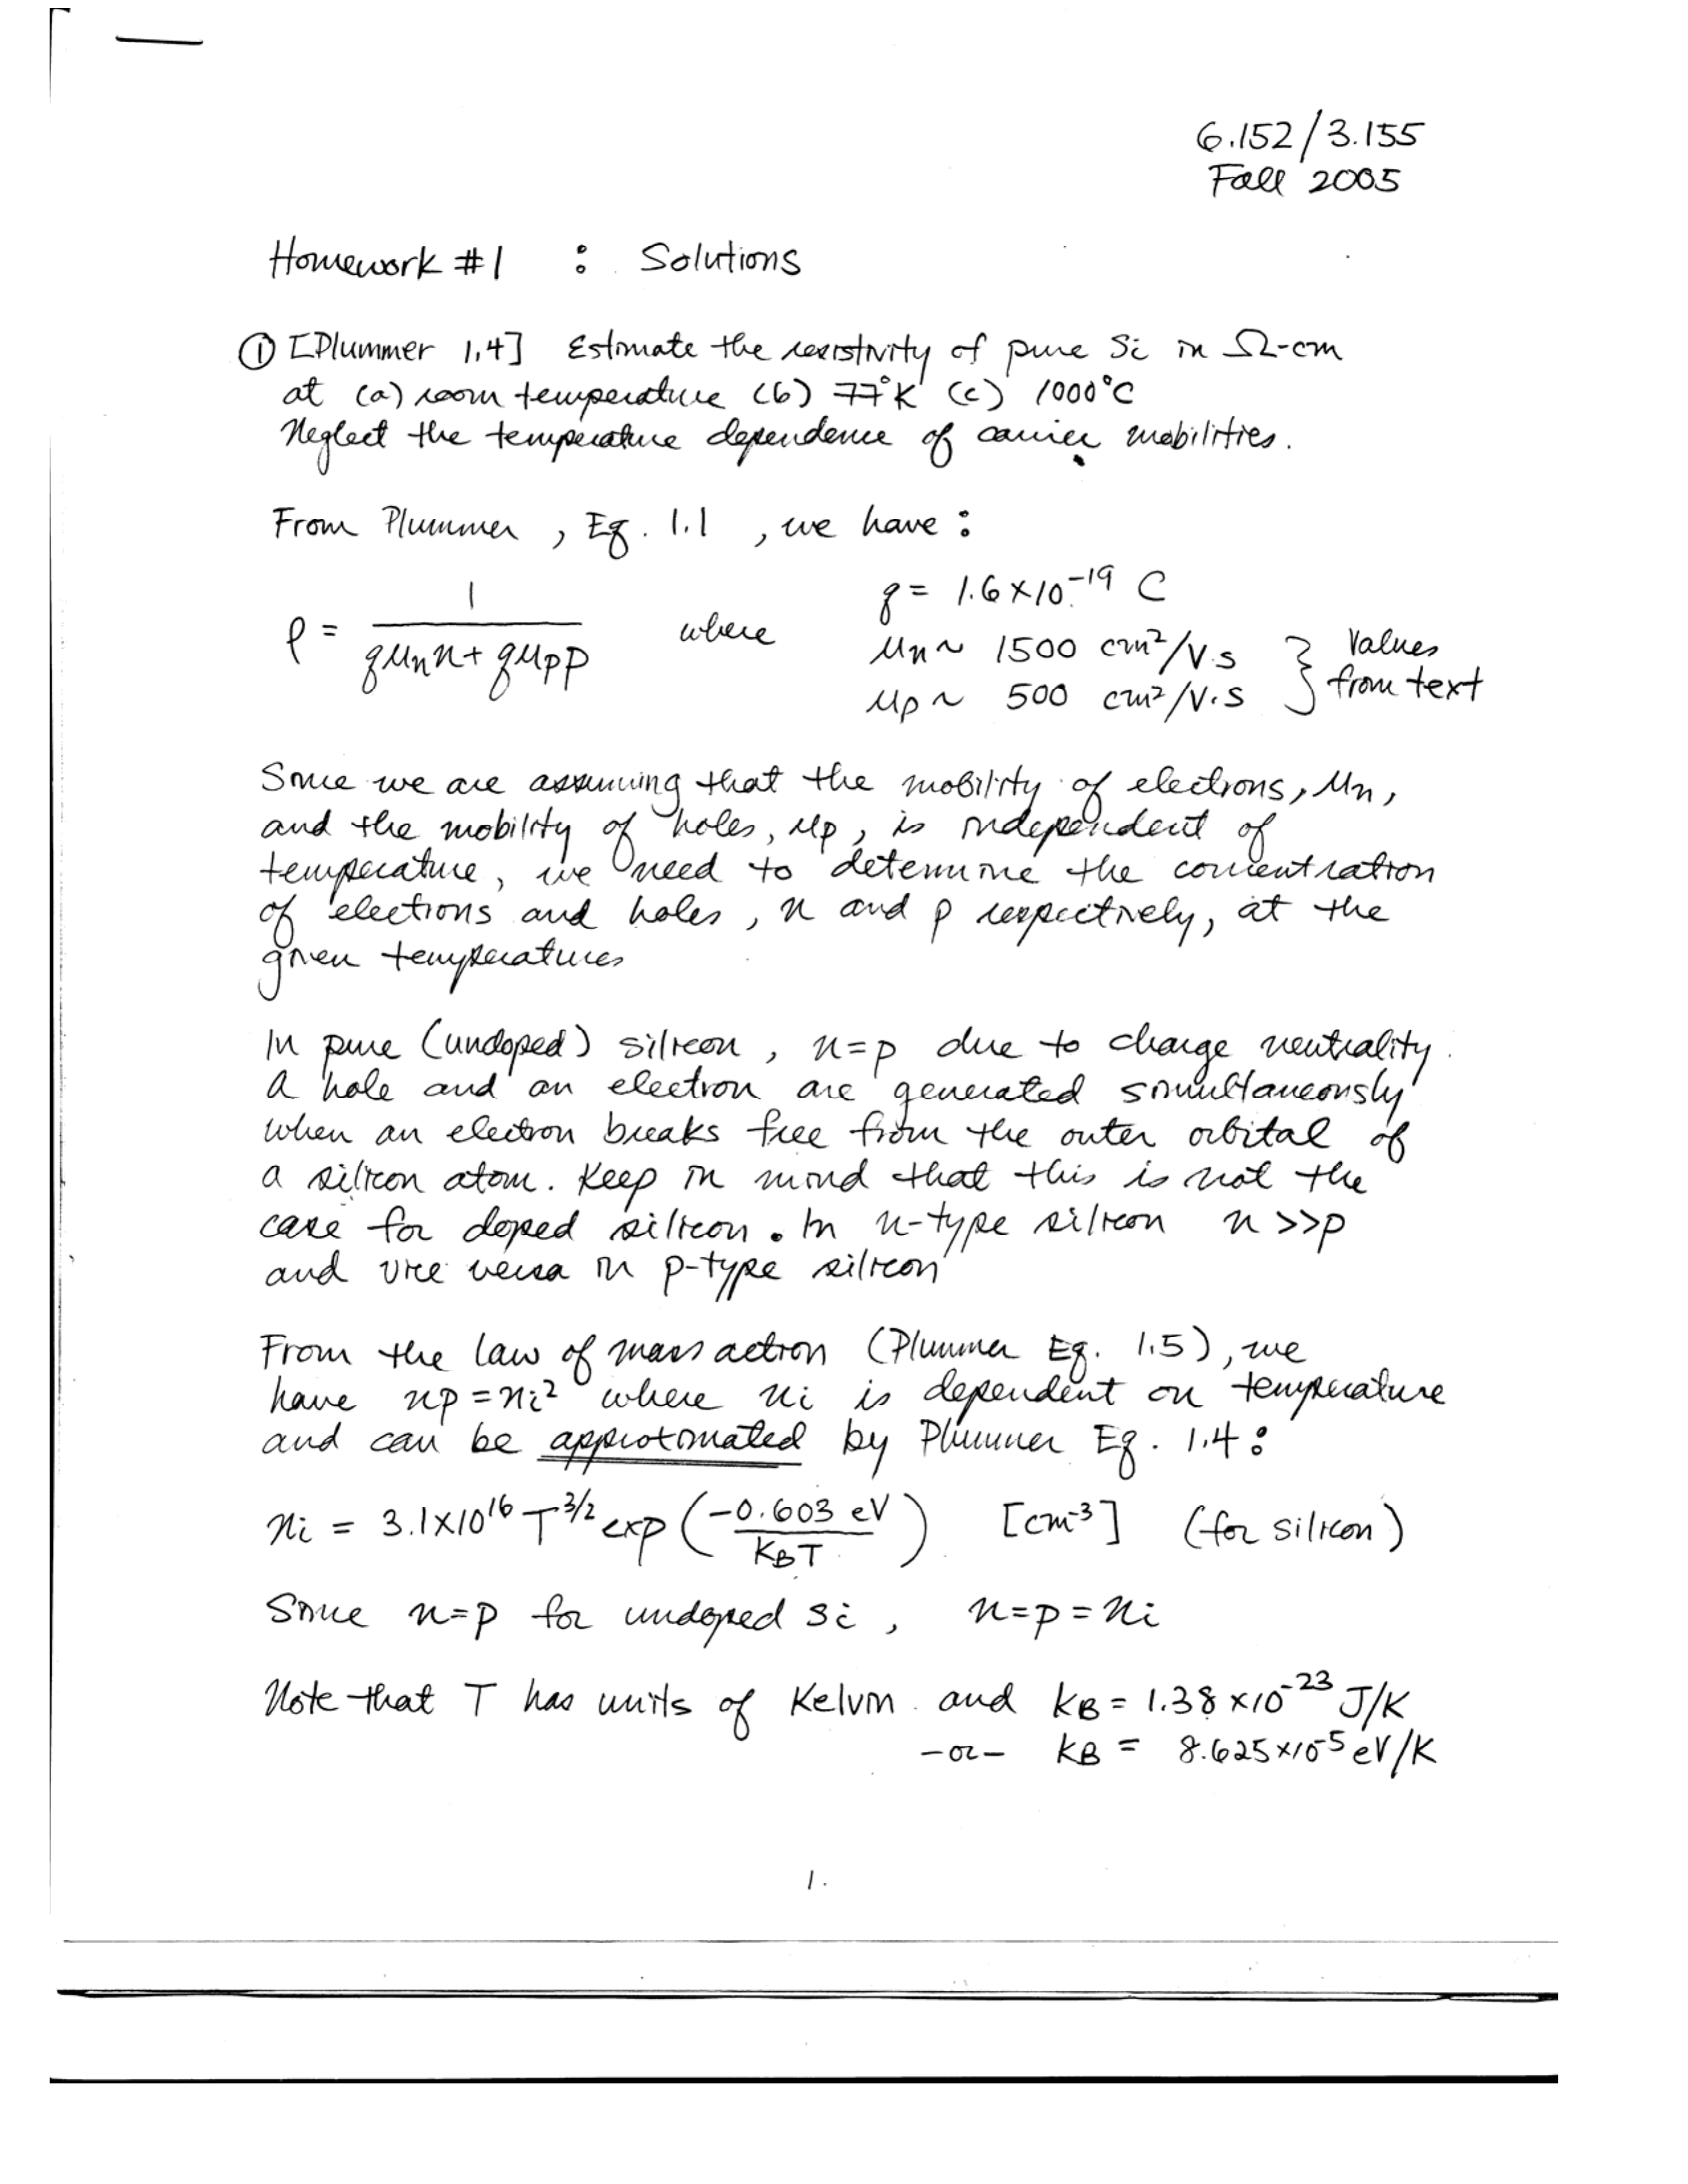 6.152/3.155
Fall 2005
Homework #1 : Solutions
① [Plummer 1.4] Estimate the resistivity of pure Si in Ω-cm
at (a) room temperature (b) 77°K (c) 1000°C
Neglect the temperature dependence of carrier mobilities.
From Plummer, Eq. 1.1, we have:
ρ = 1 / (qμₙn + qμₚp) where q = 1.6×10⁻¹⁹ C
μₙ ~ 1500 cm²/V·s } Values
μₚ ~ 500 cm²/V·s } from text
Since we are assuming that the mobility of electrons, μₙ,
and the mobility of holes, μₚ, is independent of
temperature, we need to determine the concentration
of electrons and holes, n and p respectively, at the
given temperatures
In pure (undoped) silicon, n=p due to charge neutrality.
A hole and an electron are generated simultaneously
when an electron breaks free from the outer orbital of
a silicon atom. Keep in mind that this is not the
case for doped silicon. In n-type silicon n >>p
and vice versa in p-type silicon
From the law of mass action (Plummer Eq. 1.5), we
have np = nᵢ² where nᵢ is dependent on temperature
and can be approximated by Plummer Eq. 1.4:
nᵢ = 3.1×10¹⁶ T^3/2 exp (-0.603 eV / K_BT) [cm⁻³] (for silicon)
Since n=p for undoped Si, n=p=nᵢ
Note that T has units of Kelvin and k_B = 1.38 ×10⁻²³ J/K
-or- k_B = 8.625×10⁻⁵ eV/K
1.